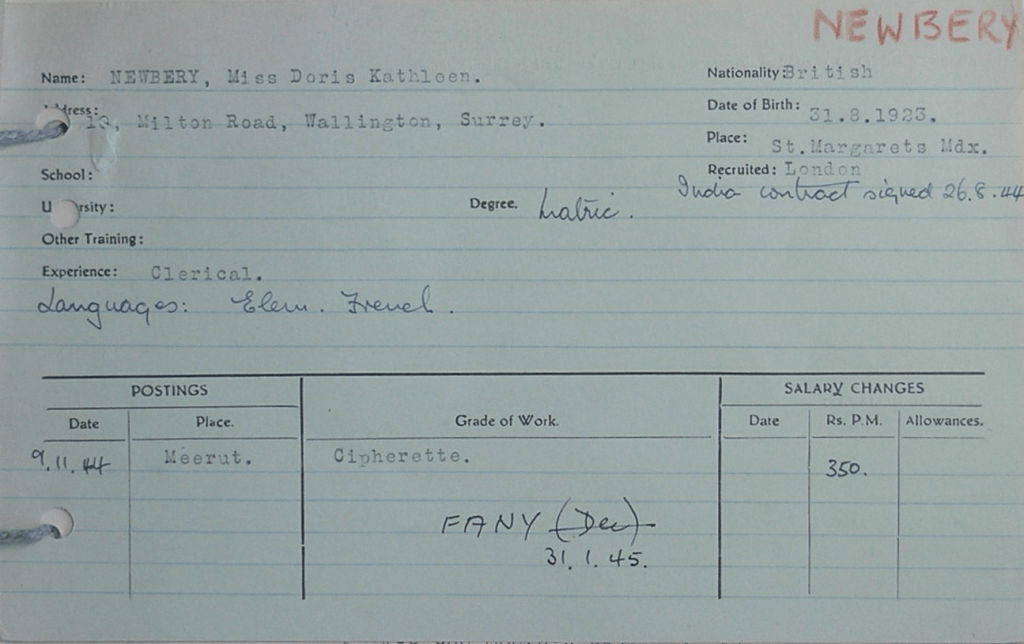 NEWBERY
Name: NEWBERY, Miss Doris Kathleen.
Nationality: British
Address: 18, Milton Road, Wallington, Surrey.
Date of Birth: 31.8.1923.
Place: St.Margarets Mdx.
School:
Recruited: London
India contract signed 26.8.44
University:
Degree. Matric.
Other Training:
Experience: Clerical.
Languages: Elem. French.
POSTINGS
SALARY CHANGES
Date Place. Grade of Work. Date Rs. P.M. Allowances.
9.11.44 Meerut. Cipherette. 350.
FANY (Dec)
31.1.45.